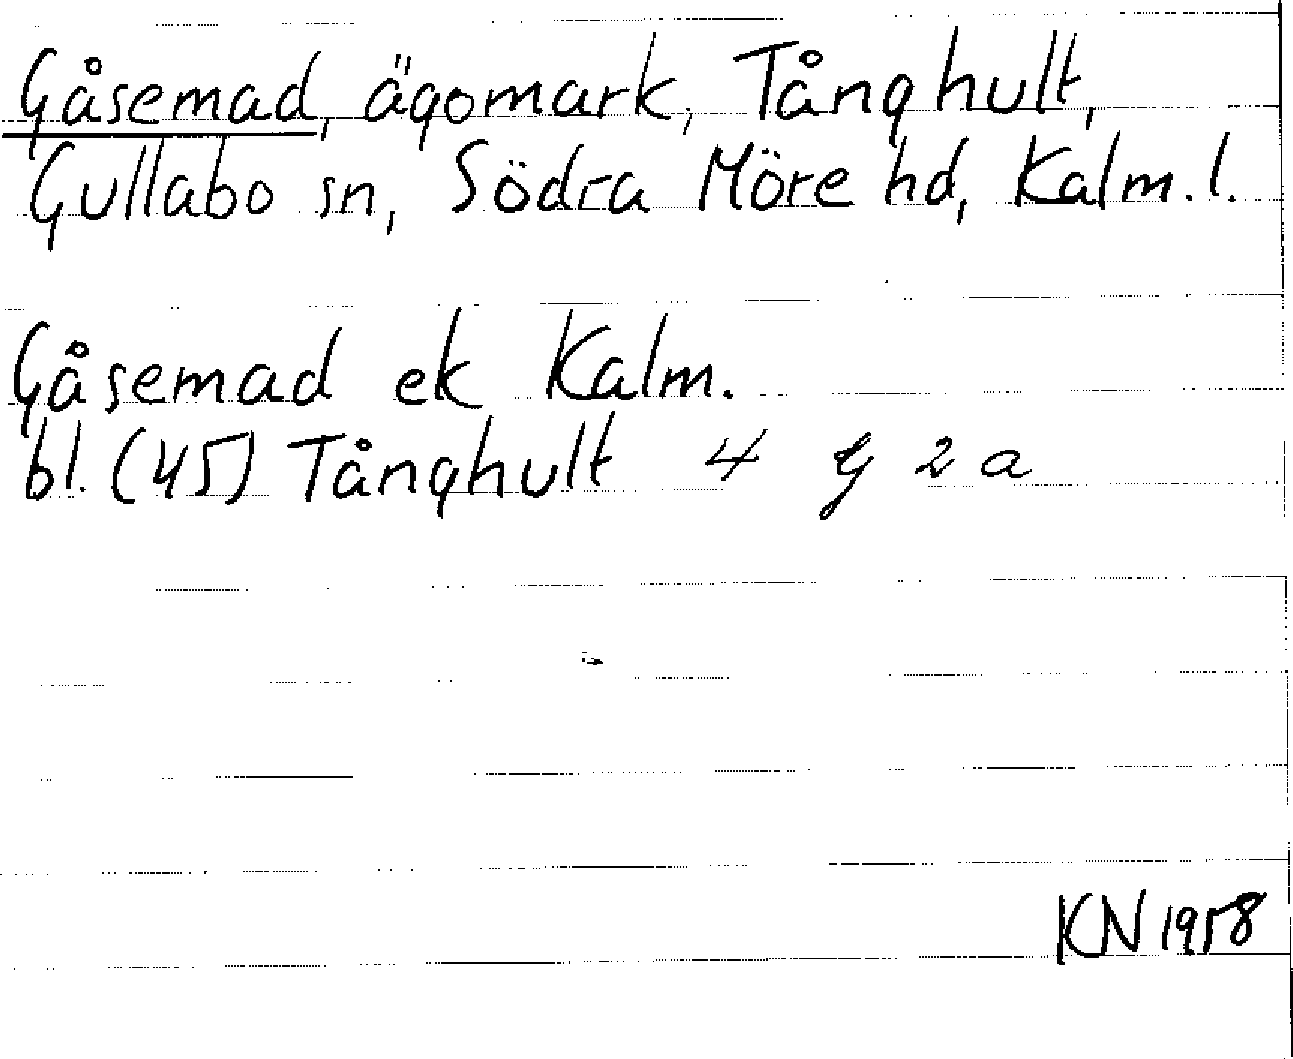 Gåsemad, ägomark, Tånghult,
Gullabo sn, Södra Möre hd, Kalm. l.
Gåsemad ek Kalm.
bl. (45) Tånghult 4 g 2 a
KN 1958